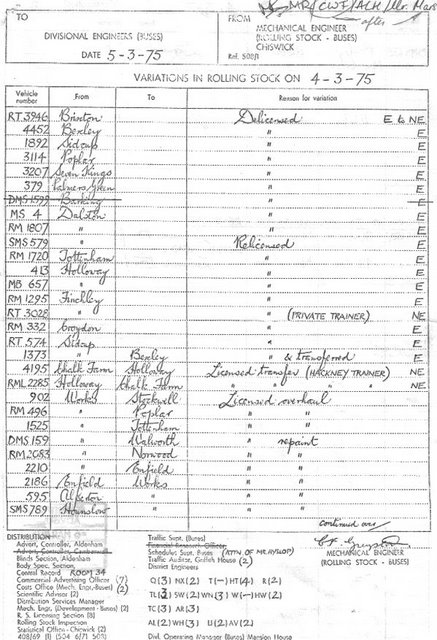 MR/CWF/ALH/Mr. Mar
after
TO
DIVISIONAL ENGINEERS (BUSES)
DATE 5-3-75
FROM
MECHANICAL ENGINEER
(ROLLING STOCK - BUSES)
CHISWICK
Ref. 508/1
VARIATIONS IN ROLLING STOCK ON 4-3-75
Vehicle number From To Reason for variation
RT 3946 Brixton Delicensed E to NE
4452 Bexley " E
1892 Sidcup " E
3114 Poplar " E
3207 Seven Kings " E
379 Palmers Green " E
DMS 1599 Barking " E
MS 4 Dalston " E
RM 1807 " " E
SMS 579 " Relicensed E
RM 1720 Tottenham " E
413 Holloway " E
MB 657 " " E
RM 1295 Finchley " E
RT 3028 " " (PRIVATE TRAINER) NE
RM 332 Croydon " E
RT 574 Sidcup " E
1373 " Bexley " & transferred E
4195 Chalk Farm Holloway Licensed transfer (HACKNEY TRAINER) NE
RML 2285 Holloway Chalk Farm " " " " NE
902 Works Stockwell Licensed overhaul
RM 496 " Poplar " "
1525 " Tottenham " "
DMS 159 " Walworth " repaint
RM 2083 " Norwood " "
2210 " Enfield " "
2186 Enfield Works " "
595 Alperton " " "
SMS 789 Hounslow " " "
continued over
DISTRIBUTION
Advert. Controller, Aldenham
Advert. Controller, Camberwell
Blinds Section, Aldenham
Body Spec. Section
Central Record ROOM 34
Commercial Advertising Officer (7)
Costs Office (Mech. Engr.-Buses) (2)
Scientific Adviser (2)
Distribution Services Manager
Mech. Engr. (Development - Buses) (2)
R. S. Licensing Section (8)
Rolling Stock Inspection
Statistical Office - Chiswick (2)
408/69 (1) (504 6/71 508)
Traffic Supt. (Buses)
Financial Research Officer
Schedules Supt. Buses (ATTN OF MR. HYSLOP)
Traffic Auditor, Griffith House (2)
District Engineers
Q (3) NX (2) T (-) HT (4) R (2)
SW (2) WN (3) W (-) HW (2)
TC (3) AR (3)
AL (2) WH (3) U (2) AV (2)
Divl. Operating Manager (Buses) Mansion House
MECHANICAL ENGINEER
(ROLLING STOCK - BUSES)